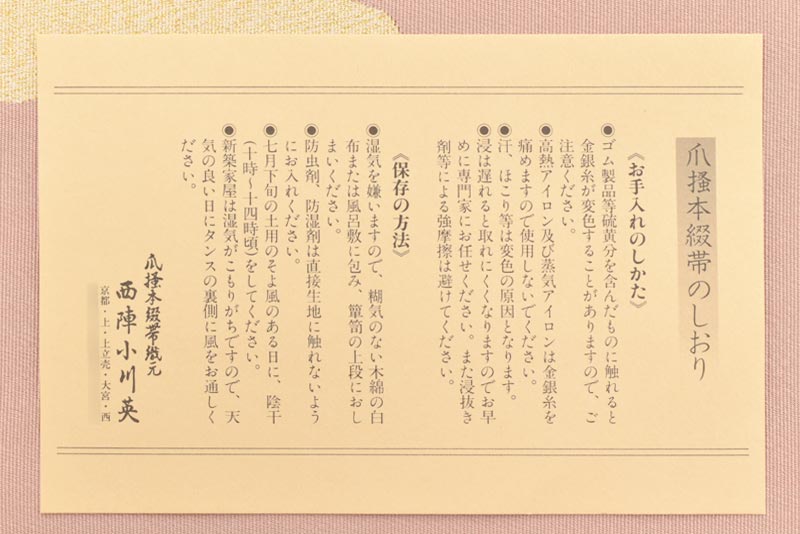 爪掻本綴帯のしおり
《お手入れのしかた》
◉ゴム製品等硫黄分を含んだものに触れると
金銀糸が変色することがありますので、ご
注意ください。
◉高熱アイロン及び蒸気アイロンは金銀糸を
痛めますので使用しないでください。
◉汗、ほこり等は変色の原因となります。
◉浸は遅れると取れにくくなりますのでお早
めに専門家にお任せください。また浸抜き
剤等による強摩擦は避けてください。
《保存の方法》
◉湿気を嫌いますので、糊気のない木綿の白
布または風呂敷に包み、簞笥の上段におし
まいください。
◉防虫剤、防湿剤は直接生地に触れないよう
にお入れください。
◉七月下旬の土用のそよ風のある日に、陰干
(十時〜十四時頃)をしてください。
◉新築家屋は湿気がこもりがちですので、天
気の良い日にタンスの裏側に風をお通しく
ださい。
爪掻本綴帯織元
西陣小川英
京都・上・上立売・大宮・西